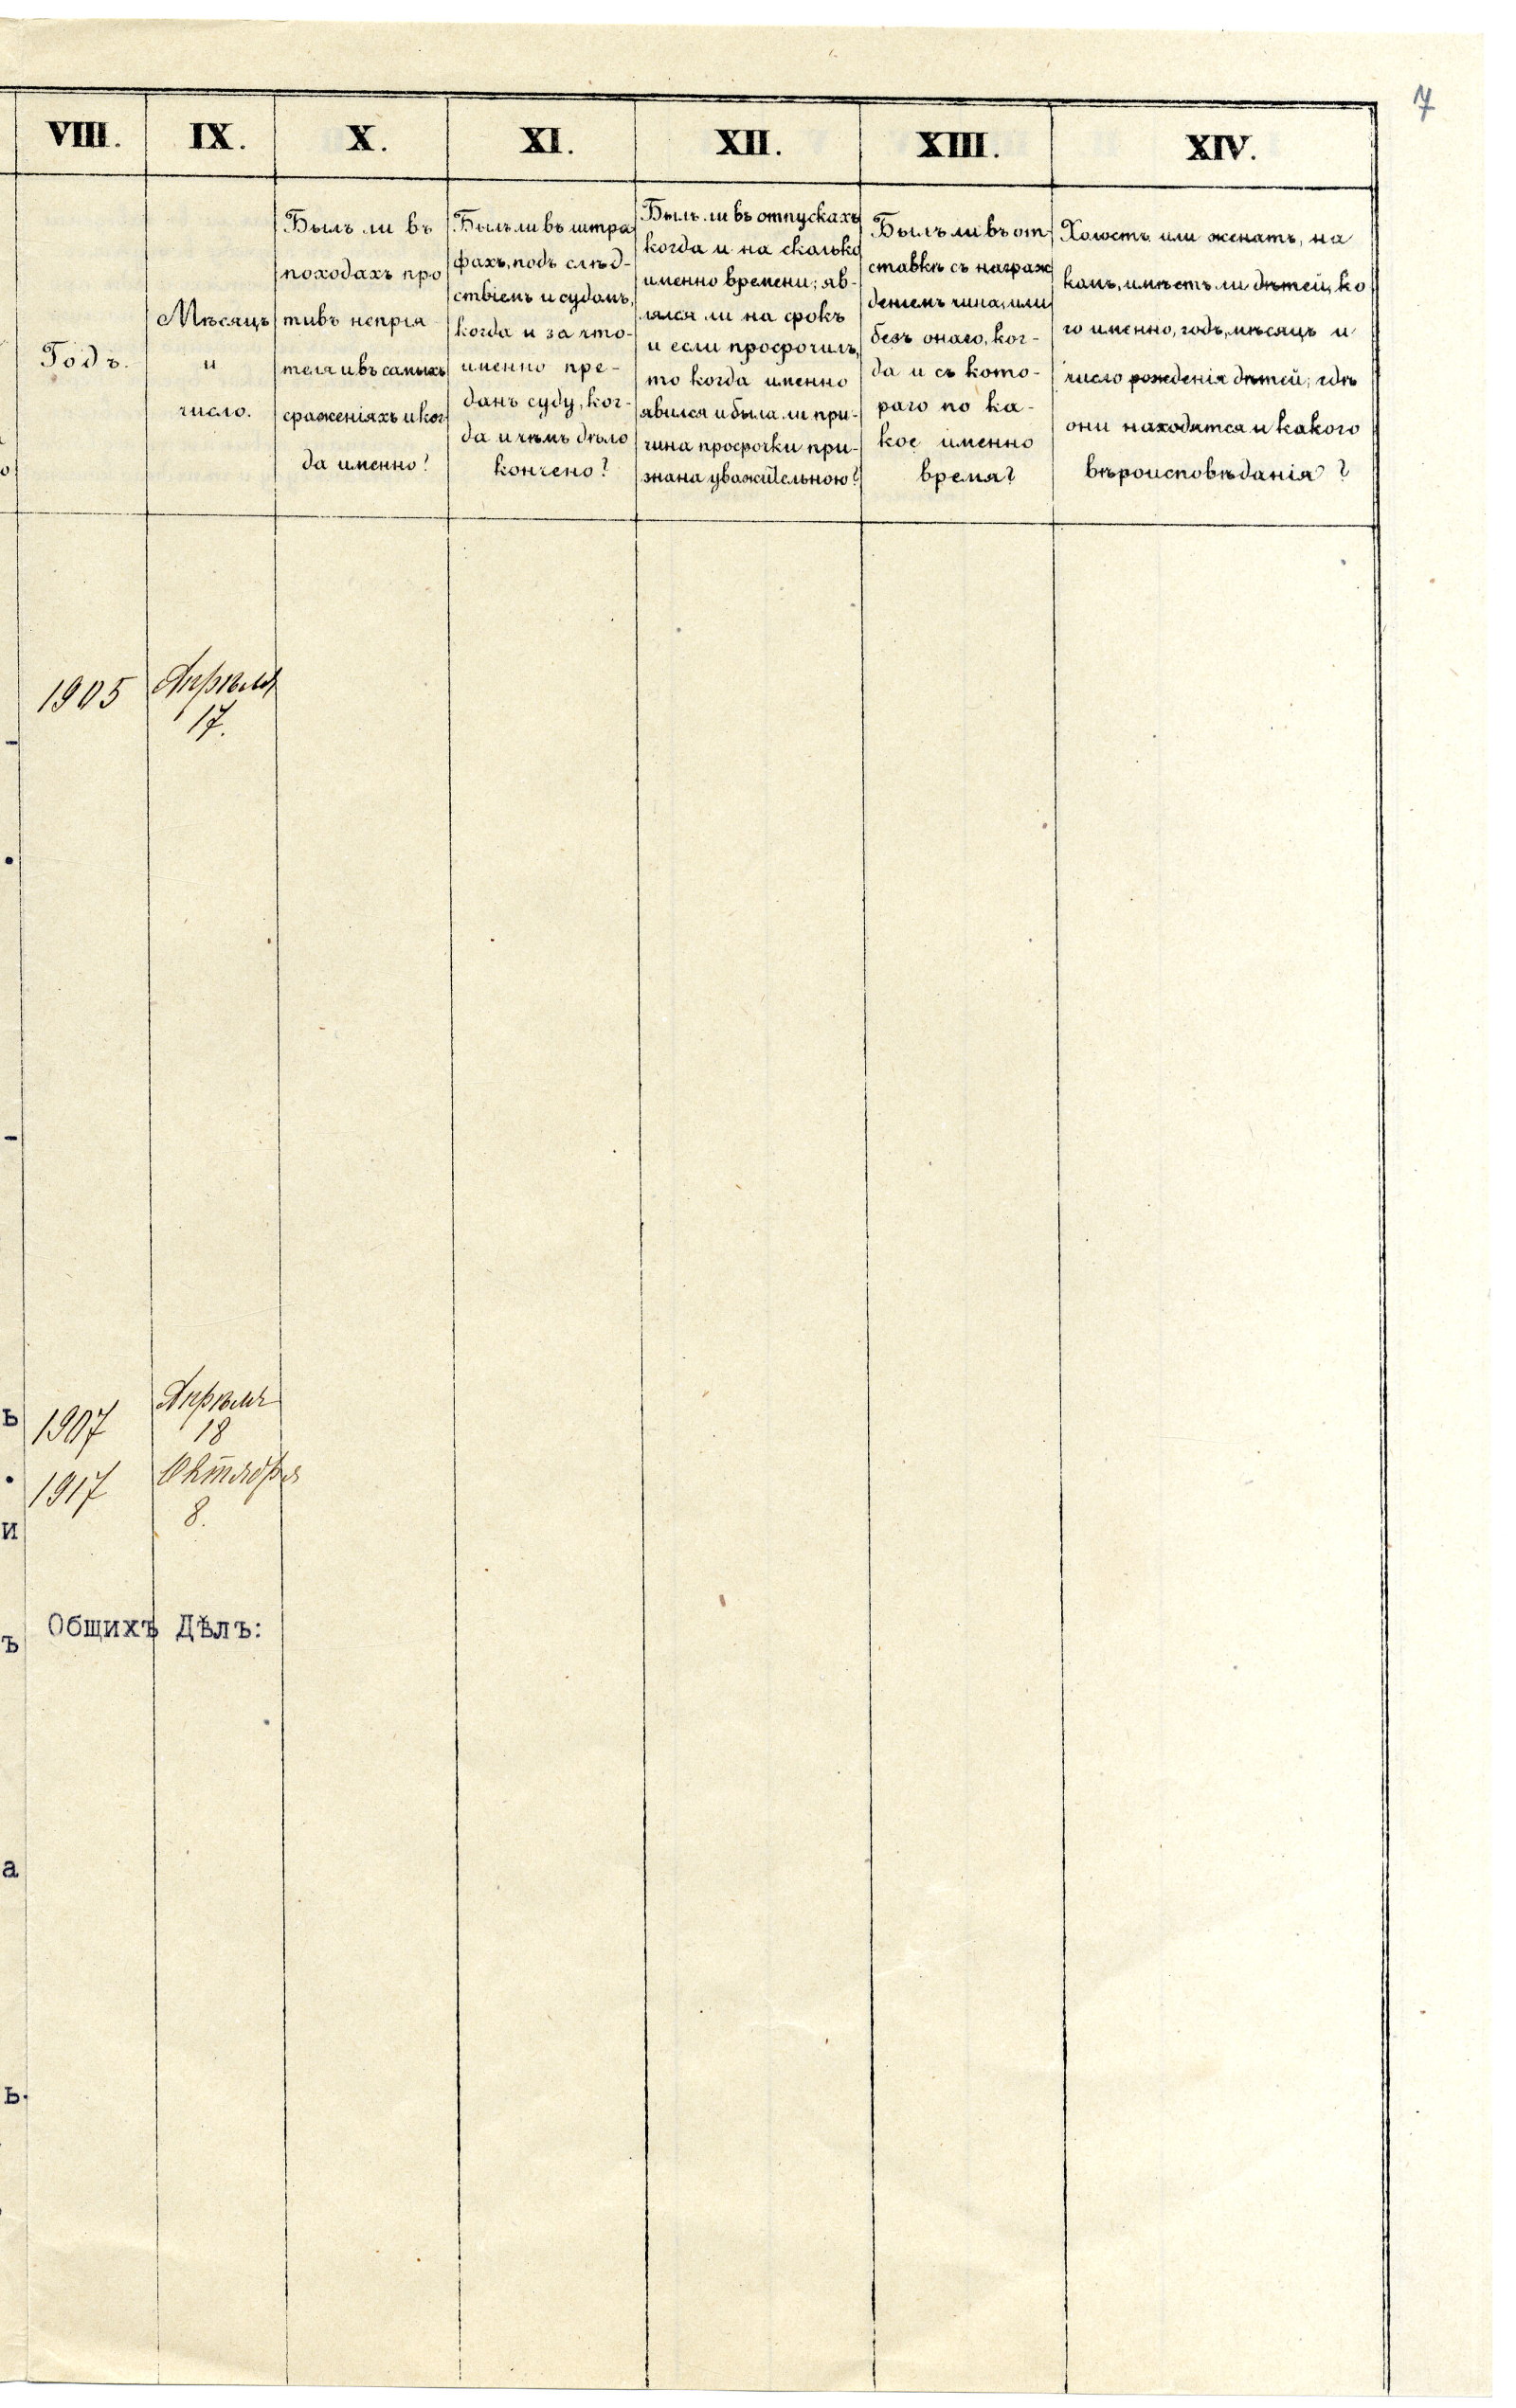 7
VIII. IX. X. XI. XII. XIII. XIV.
Годъ.
Мѣсяцъ
и
число.
Былъ ли въ
походахъ про
тивъ непрія
теля и въ самыхъ
сраженіяхъ и ког
да именно?
Былъ ли въ штра
фахъ, подъ слѣд-
ствіемъ и судомъ,
когда и за что-
именно пре-
данъ суду, ког-
да и чѣмъ дѣло
кончено?
Былъ ли въ отпускахъ
когда и на сколько
именно времени; яв-
лялся ли на срокъ
и если просрочилъ,
то когда именно
явился и была ли при-
чина просрочки при-
знана уважительною?
Былъ ли въ от
ставкѣ съ награж
деніемъ чина, или
безъ онаго, ког-
да и съ кото-
раго по ка-
кое именно
время?
Холостъ или женатъ, на
комъ, имѣетъ ли дѣтей, ко
го именно, годъ, мѣсяцъ и
число рожденія дѣтей; гдѣ
они находятся и какого
вѣроисповѣданія?
1905 Апрѣля
17.
-
-
Апрѣля
ъ 1907 18
1917 Октября
8.
и
ъ Общихъ Дѣлъ:
а
ь.